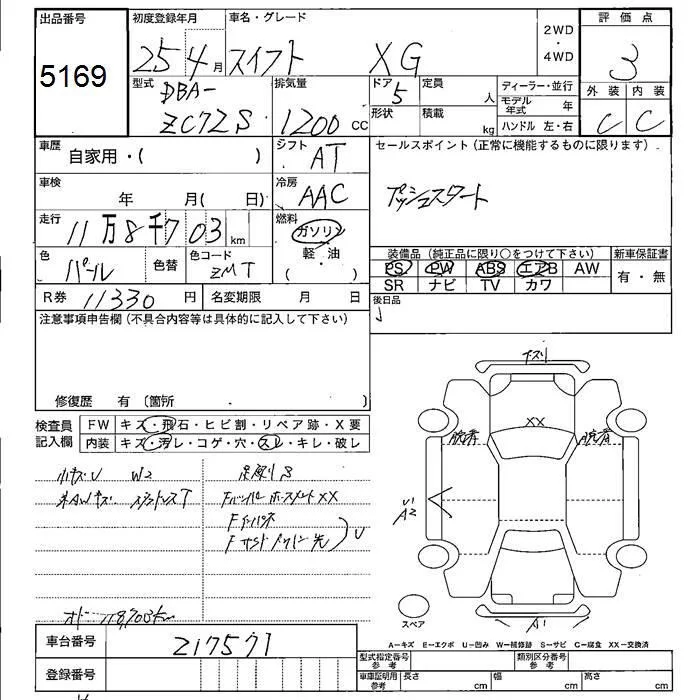 出品番号
5169
初度登録年月
25 4 月
車名・グレード
スイフト XG
2WD
・
4WD
評価点
3
型式
DBA-
ZC72S
排気量
1200 CC
ドア
5
形状
定員
人
積載
kg
ディーラー・並行
モデル年式 年
ハンドル 左・右
外装 内装
C C
車歴
自家用・( )
シフト
AT
セールスポイント (正常に機能するものに限ります)
プッシュスタート
車検
年 月( 日)
冷房
AAC
走行
11万8千703 km
燃料
ガソリン
軽・油
( )
色
パール
色替
色コード
ZMT
装備品 (純正品に限り○をつけて下さい)
新車保証書
PS PW ABS エアB AW
有・無
SR ナビ TV カワ
R券 11330 円
名変期限 月 日
後日品
注意事項申告欄 (不具合内容等は具体的に記入して下さい)
修復歴 有 (箇所 )
検査員
記入欄
FW キズ・飛石・ヒビ割・リペア跡・X要
内装 キズ・汚レ・コゲ・穴・スレ・キレ・破レ
小キズU W2
AWキズ
足廻りS
XX
U
オドー 118,703km
XX
U1
A2
A1
スペア
A−キズ E−エクボ U−凹み W−補修跡 S−サビ C−腐食 XX−交換済
車台番号 217571
登録番号
型式指定番号
参考
類別区分番号
参考
車庫証明用
参考
長さ cm
幅 cm
高さ cm